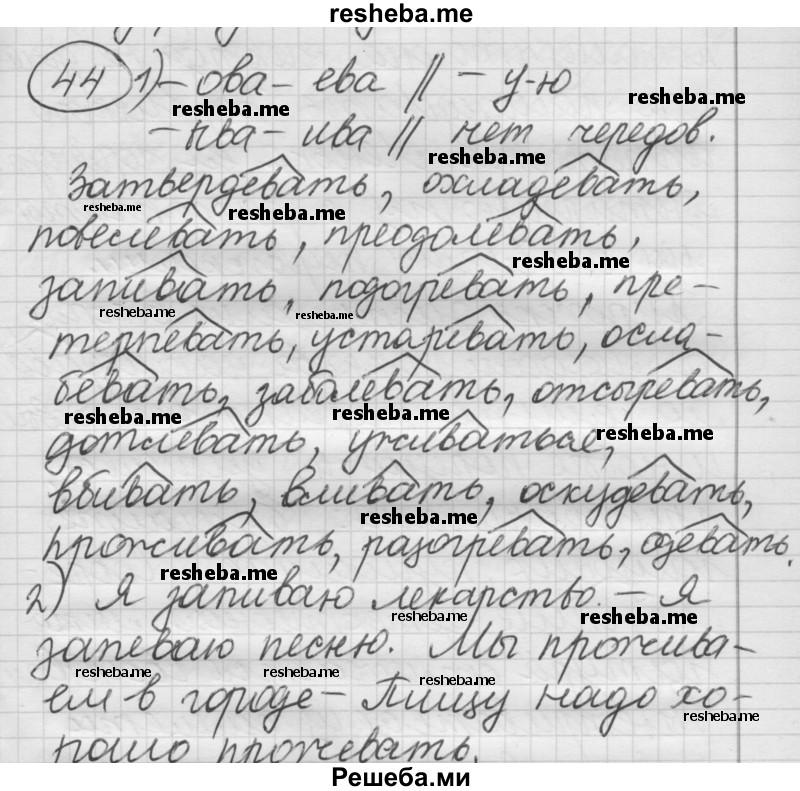 resheba.me
44 1) - ова - ева // - у-ю
resheba.me resheba.me
- ыва - ива // нет чередов.
resheba.me
Затвердевать, охладевать,
resheba.me resheba.me
повелевать, преодолевать,
resheba.me
запивать, подогревать, пре-
resheba.me resheba.me
терпевать, устаревать, осла-
бевать, заболевать, отсыревать,
resheba.me resheba.me
дотлевать, уживаться,
resheba.me
вбивать, вливать, оскудевать,
resheba.me
проживать, разогревать, одевать.
resheba.me
2) Я запиваю лекарство. - Я
resheba.me resheba.me
запеваю песню. Мы прожива-
resheba.me resheba.me resheba.me
ем в городе - Пищу надо хо-
resheba.me
рошо прожевать.
Решеба.ми